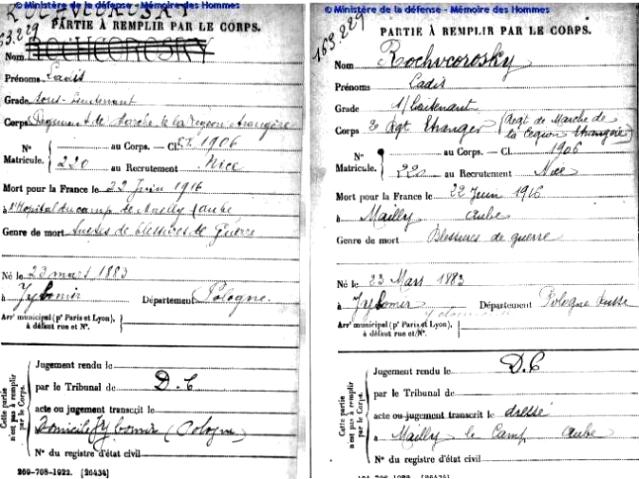 © Ministère de la défense - Mémoire des Hommes
ROCHUCROSKY
PARTIE À REMPLIR PAR LE CORPS.
163.229
Nom ROCHCOROSKY
Prénoms Ladis
Grade Sous-Lieutenant
Corps Régiment de Marche de la Légion étrangère
N° au Corps. — Cl. 1906
Matricule. 220 au Recrutement Nice
Mort pour la France le 22 Juin 1916
à l'Hôpital du camp de Mailly (aube
Genre de mort Suites de blessures de Guerre
Né le 23 mars 1883
à Jytomir Département Pologne.
Arr' municipal (p' Paris et Lyon),
à défaut rue et N°.
Cette partie
n'est pas à remplir
par le Corps.
Jugement rendu le
par le Tribunal de D.C
acte ou jugement transcrit le
Domicile Jytomir (Pologne)
N° du registre d'état civil
269-708-1922. [26434]
© Ministère de la défense - Mémoire des Hommes
163.229
PARTIE À REMPLIR PAR LE CORPS.
Nom Rochvcorosky
Prénoms Ladis
Grade S/Lieutenant
Corps 2e Rgt Etranger (Regt de Marche de
la Légion Etrangère)
N° au Corps. — Cl. 1906
Matricule. 220 au Recrutement Nice
Mort pour la France le 22 Juin 1916
à Mailly Aube
Genre de mort Blessures de guerre
Né le 23 Mars 1883
à Jytomir Département Pologne Russe
Arr' municipal (p' Paris et Lyon),
à défaut rue et N°.
Cette partie
n'est pas à remplir
par le Corps.
Jugement rendu le D.C
par le Tribunal de
acte ou jugement transcrit le dressé
à Mailly le Camp Aube
N° du registre d'état civil
[26434]